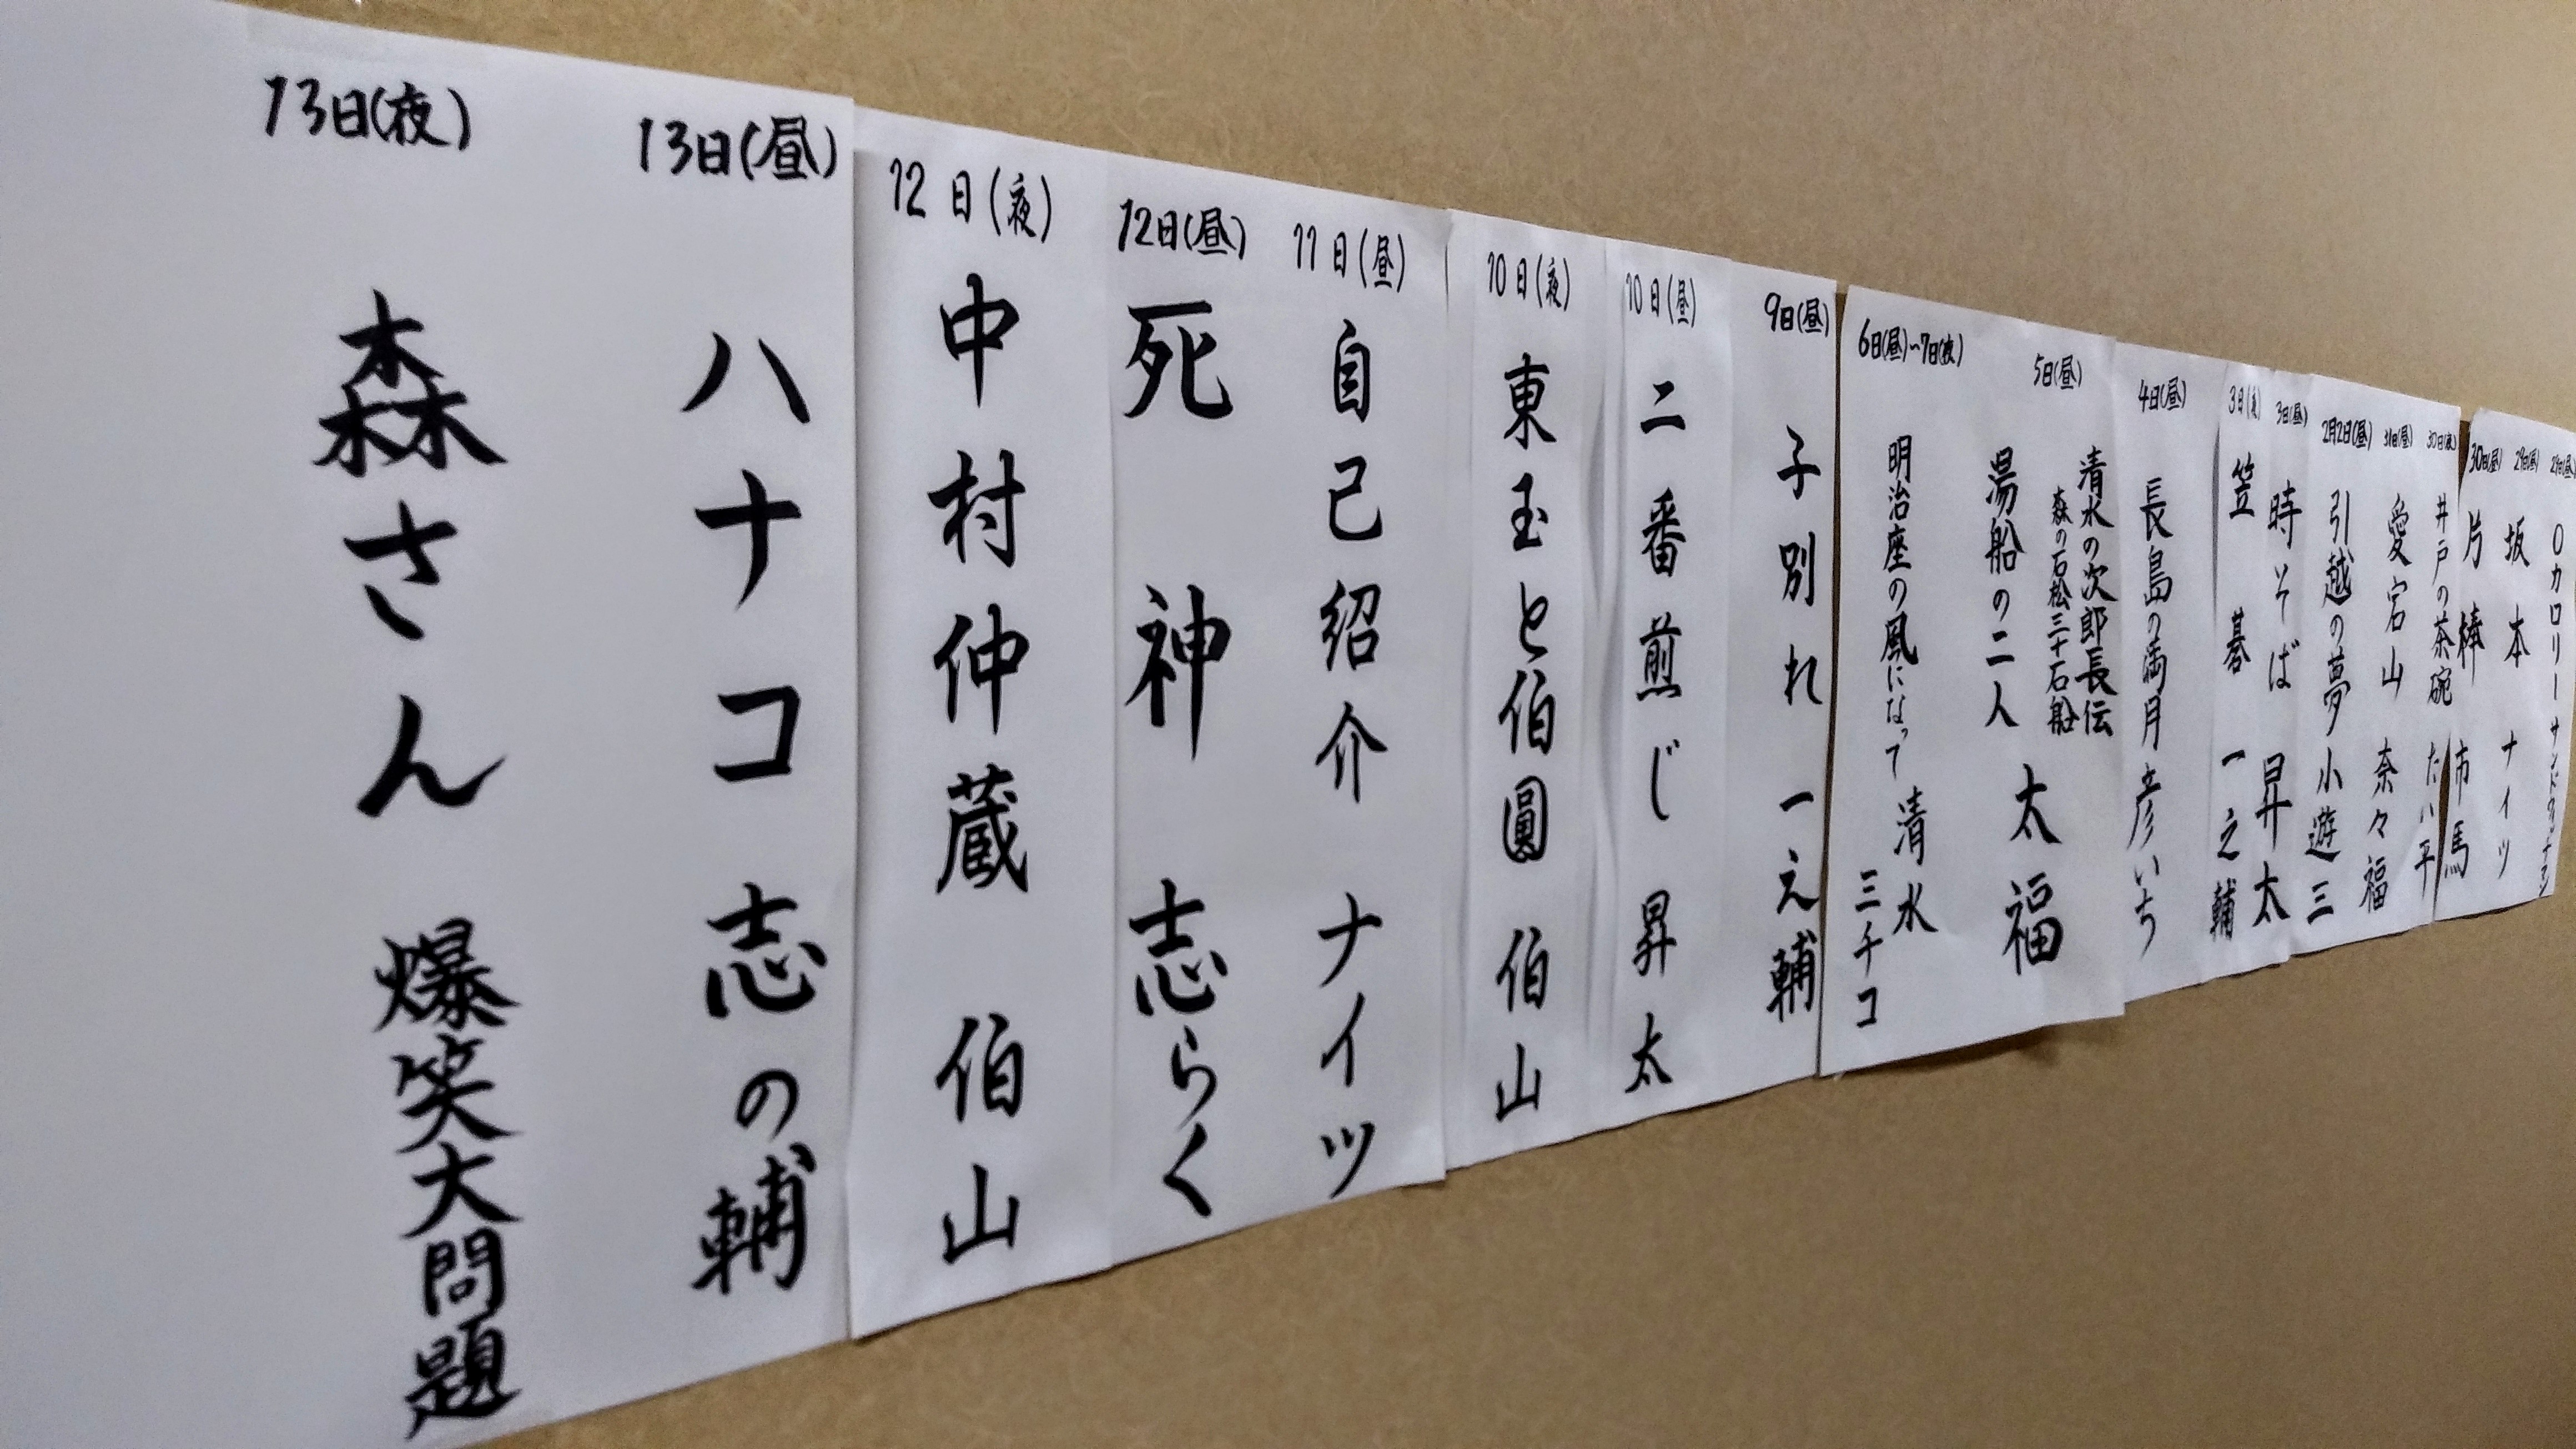 0カロリー サンドウィッチマン
29日(昼)
坂本 ナイツ
30日(昼)
片棒 市馬
30日(夜)
井戸の茶碗 たい平
31日(昼)
愛宕山 奈々福
2月2日(昼)
引越の夢 小遊三
3日(昼)
時そば 昇太
3日(夜)
笠碁 一之輔
4日(昼)
長島の満月 彦いち
5日(昼)
清水の次郎長伝
森の石松三十石船
湯船の二人
太福
6日(昼)〜7日(夜)
明治座の風になって 清水
ミチコ
9日(昼)
子別れ 一之輔
10日(昼)
二番煎じ 昇太
10日(夜)
東玉と伯圓 伯山
11日(昼)
自己紹介 ナイツ
12日(昼)
死神 志らく
12日(夜)
中村仲蔵 伯山
13日(昼)
ハナコ 志の輔
13日(夜)
森さん 爆笑大問題